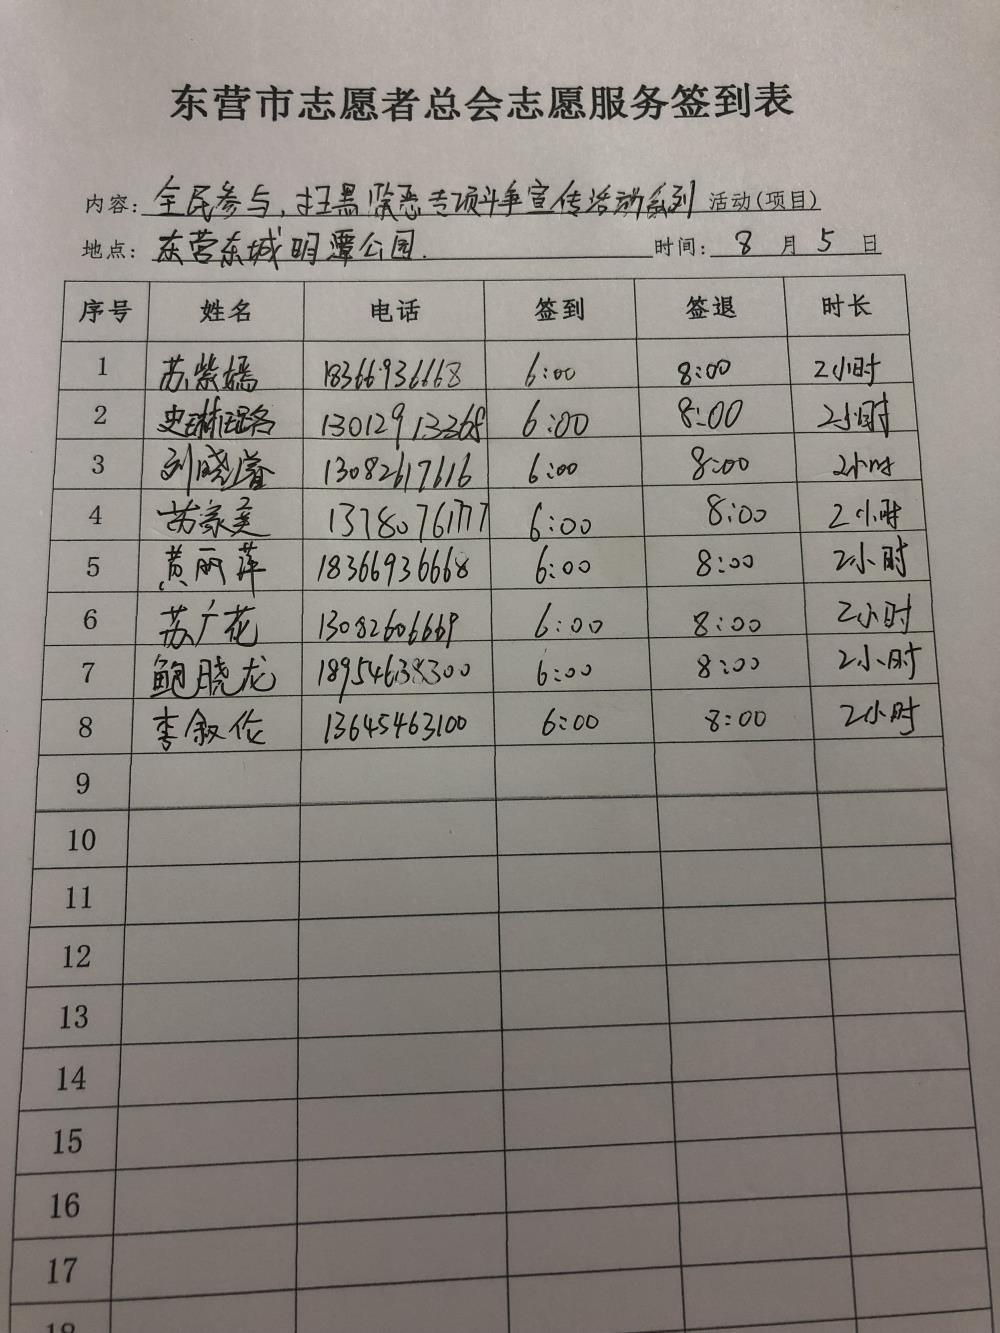 东营市志愿者总会志愿服务签到表
内容: 全民参与,扫黑除恶专项斗争宣传活动系列 活动(项目)
地点: 东营东城明潭公园. 时间: 8 月 5 日
序号 姓名 电话 签到 签退 时长
1 苏紫嫣 18366936668 6:00 8:00 2小时
2 史琳珺路 13012913368 6:00 8:00 2小时
3 刘晓睿 13082617616 6:00 8:00 2小时
4 苏家美 13780761777 6:00 8:00 2小时
5 黄丽萍 18366936668 6:00 8:00 2小时
6 苏广花 13082606669 6:00 8:00 2小时
7 鲍晓龙 18954638300 6:00 8:00 2小时
8 李叙伦 13645463100 6:00 8:00 2小时
9
10
11
12
13
14
15
16
17
18